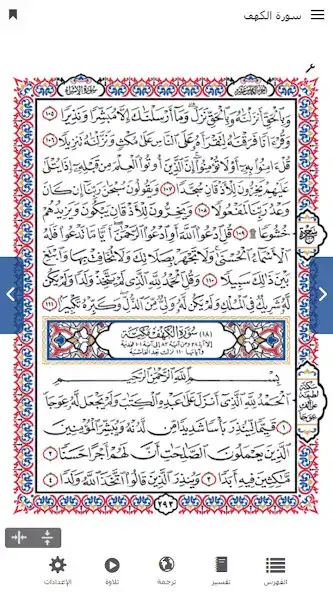 سورة الكهف
سُورَةُ الإِسْرَاءِ
الجزء الخامس عشر
وَبِالْحَقِّ أَنزَلْنَاهُ وَبِالْحَقِّ نَزَلَ وَمَا أَرْسَلْنَاكَ إِلَّا مُبَشِّرًا وَنَذِيرًا ١٠٥
وَقُرْءَانًا فَرَقْنَاهُ لِتَقْرَأَهُ عَلَى النَّاسِ عَلَى مُكْثٍ وَنَزَّلْنَاهُ تَنزِيلًا ١٠٦
قُلْ ءَامِنُوا بِهِ أَوْ لَا تُؤْمِنُوا إِنَّ الَّذِينَ أُوتُوا الْعِلْمَ مِن قَبْلِهِ إِذَا يُتْلَى
عَلَيْهِمْ يَخِرُّونَ لِلْأَذْقَانِ سُجَّدًا ١٠٧ وَيَقُولُونَ سُبْحَانَ رَبِّنَا إِن كَانَ
وَعْدُ رَبِّنَا لَمَفْعُولًا ١٠٨ وَيَخِرُّونَ لِلْأَذْقَانِ يَبْكُونَ وَيَزِيدُهُمْ
خُشُوعًا ۩ ١٠٩ قُلِ ادْعُوا اللَّهَ أَوِ ادْعُوا الرَّحْمَٰنَ أَيًّا مَا تَدْعُوا فَلَهُ
الْأَسْمَاءُ الْحُسْنَى وَلَا تَجْهَرْ بِصَلَاتِكَ وَلَا تُخَافِتْ بِهَا وَابْتَغِ
بَيْنَ ذَٰلِكَ سَبِيلًا ١١٠ وَقُلِ الْحَمْدُ لِلَّهِ الَّذِي لَمْ يَتَّخِذْ وَلَدًا وَلَمْ يَكُن
لَّهُ شَرِيكٌ فِي الْمُلْكِ وَلَمْ يَكُن لَّهُ وَلِيٌّ مِّنَ الذُّلِّ وَكَبِّرْهُ تَكْبِيرًا ١١١
(١٨) سُورَةُ الْكَهْفِ مَكِّيَّة
إلا آية ٣٨ ومن آية ٨٣ إلى آية ١٠١ فمدنية
وآياتها ١١٠ نزلت بعد الغاشية
بِسْمِ اللَّهِ الرَّحْمَٰنِ الرَّحِيمِ
الْحَمْدُ لِلَّهِ الَّذِي أَنزَلَ عَلَى عَبْدِهِ الْكِتَابَ وَلَمْ يَجْعَل لَّهُ عِوَجًا
١ قَيِّمًا لِّيُنذِرَ بَأْسًا شَدِيدًا مِّن لَّدُنْهُ وَيُبَشِّرَ الْمُؤْمِنِينَ
الَّذِينَ يَعْمَلُونَ الصَّالِحَاتِ أَنَّ لَهُمْ أَجْرًا حَسَنًا ٢
مَّاكِثِينَ فِيهِ أَبَدًا ٣ وَيُنذِرَ الَّذِينَ قَالُوا اتَّخَذَ اللَّهُ وَلَدًا ٤
٢٩٣
الفهرس
تفسير
ترجمة
تلاوة
الإعدادات